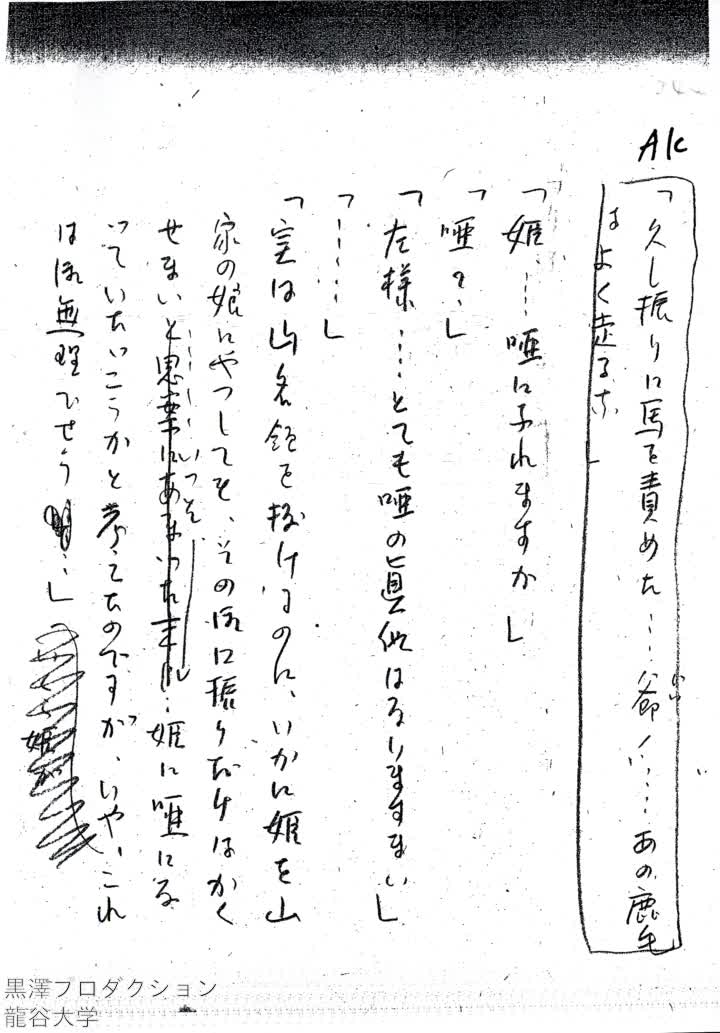 AK
「久し振りに馬を責めた……爺（じい）……あの鹿毛
はよく走るな
「姫……唖になれますか」
「唖？」
「左様……とても唖の真似はなりますまい」
「……」
「実は山名領を抜けるのに、いかに姫を山
家の娘にやつしても、そのお口振りだけはかく
せまいと思案にあまつた末……いつそ姫に唖にな
つていたゞこうかと考えたのですが、いや、これ
は御無理でせう……」
黒澤プロダクション
龍谷大学